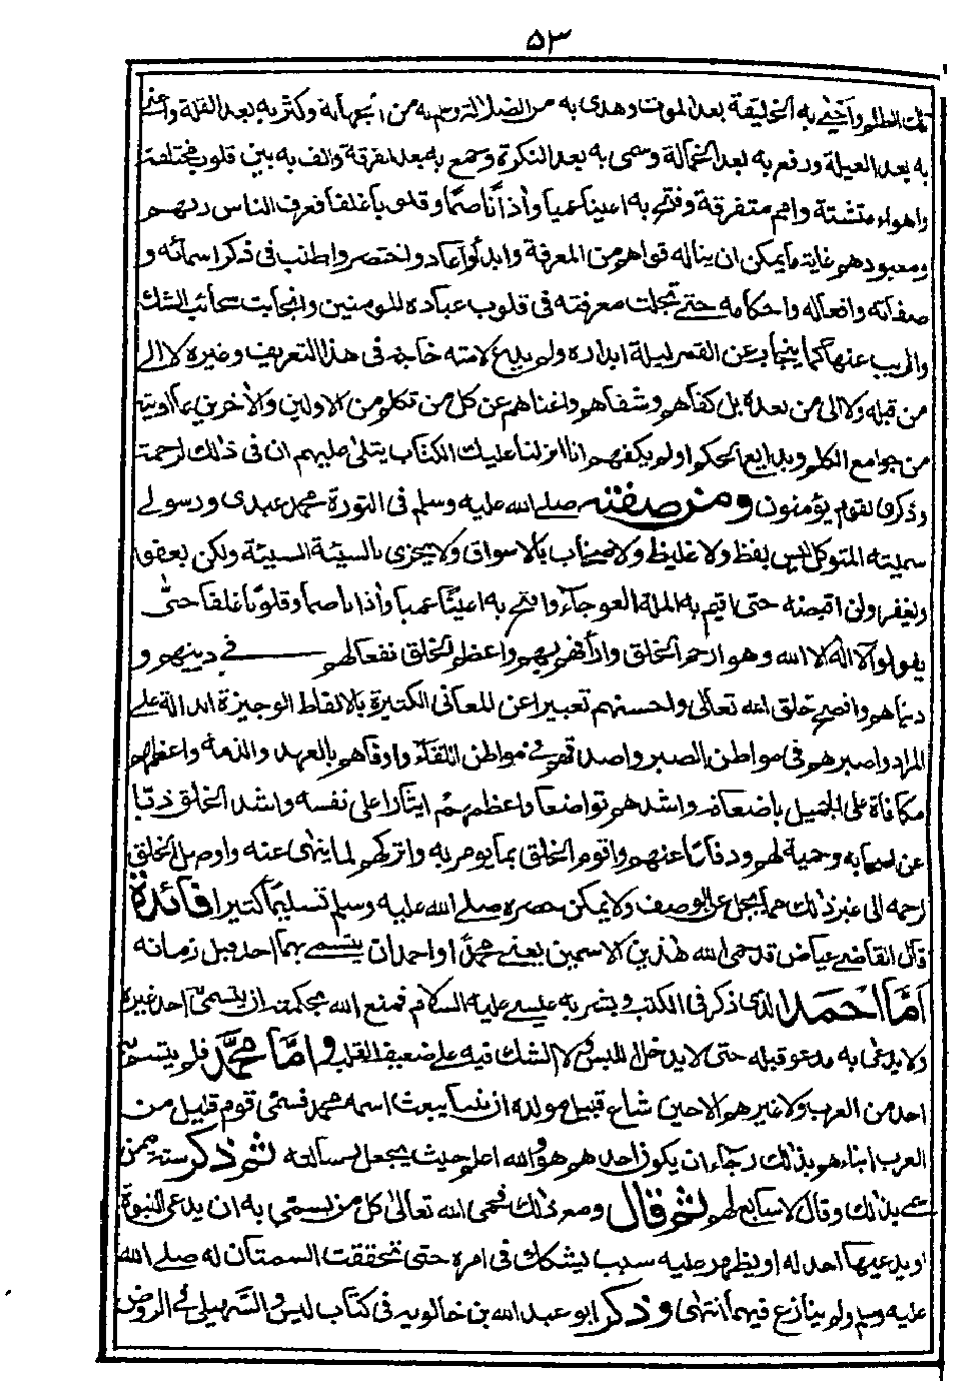 ٥٣
تلك الظلم واحيى به الخليقة بعد الموت وهدى به من الضلالة وعلم به من الجهالة وكثر به بعد القلة واغنى
به بعد العيلة ورفع به بعد الخمالة وسمى به بعد النكرة وجمع به بعد الفرقة والف به بين قلوب مختلفة
واهواء متشتة وامم متفرقة وفتح به اعينا عميا واذانا صما وقلوبا غلفا فعرف الناس ربهم
ومعبودهم غاية ما يمكن ان يناله قواهم من المعرفة وابدأ واعاد واختصر واطنب فى ذكر اسمائه و
صفاته وافعاله واحكامه حتى تجلت معرفته فى قلوب عباده المومنين وانجابت سحائب الشك
والريب عنها كما ينجاب عن القمر ليلة ابداره ولم يدع لامته حاجة فى هذا التعريف وغيره لا الى
من قبله ولا الى من بعده بل كفاهم وشفاهم واغناهم عن كل من تكلم من الاولين والاخرين بما اوتيه
من جوامع الكلم وبدايع الحكم اولم يكفهم انا انزلنا عليك الكتاب يتلى عليهم ان فى ذلك لرحمة
وذكرى لقوم يؤمنون ومن صفته صلى الله عليه وسلم فى التورة محمد عبدى ورسولى
سميته المتوكل ليس بفظ ولا غليظ ولا صخاب بالاسواق ولا يجزى بالسيئة السيئة ولكن يعفو
ويغفر ولن اقبضه حتى اقيم به الملة العوجاء وافتح به اعينا عميا واذانا صما وقلوبا غلفا حتى
يقولوا لا اله الا الله وهو ارحم الخلق وارأفهم بهم واعظم الخلق نفعا لهم فى دينهم و
دنياهم وافصح خلق الله تعالى واحسنهم تعبيرا عن المعانى الكثيرة بالالفاظ الوجيزة الدالة على
المراد واصبرهم فى مواطن الصبر واصدقهم فى مواطن اللقاء واوفاهم بالعهد والذمة واعظمهم
مكافاة على الجميل باضعافه واشدهم تواضعا واعظمهم ايثارا على نفسه واشد الخلق ذبا
عن اصحابه وحمية لهم ودفاعا عنهم واقوم الخلق بما يومر به واتركهم لما ينهى عنه واوصل الخلق
لرحمه الى غير ذلك مما يجل عن الوصف ولا يمكن حصره صلى الله عليه وسلم تسليما كثيرا فائدة
قال القاضى عياض قد حمى الله هذين الاسمين يعنى محمدا واحمد ان يتسمى بهما احد قبل زمانه
اما احمد الذى ذكر فى الكتب وبشر به عيسى عليه السلام فمنع الله بحكمته ان يتسمى به احد غيره
ولا يدعى به مدعو قبله حتى لا يدخل اللبس ولا الشك فيه على ضعيف القلب واما محمد فلم يتسم به
احد من العرب ولا غيرهم الا حين شاع قبيل مولده ان نبيا يبعث اسمه محمد فسمى قوم قليل من
العرب ابناءهم بذلك رجاء ان يكون احدهم هو والله اعلم حيث يجعل رسالته ثم ذكر ستة ممن
سمى بذلك وقال لا سابع لهم ثم قال ومع ذلك فحمى الله تعالى كل من تسمى به ان يدعى النبوة
او يدعيها احد له او يظهر عليه سبب يشكك فى امره حتى تحققت السمتان له صلى الله
عليه وسلم ولم ينازع فيهما انتهى وذكر ابو عبد الله بن خالويه فى كتاب ليس والسهيلى فى الروض